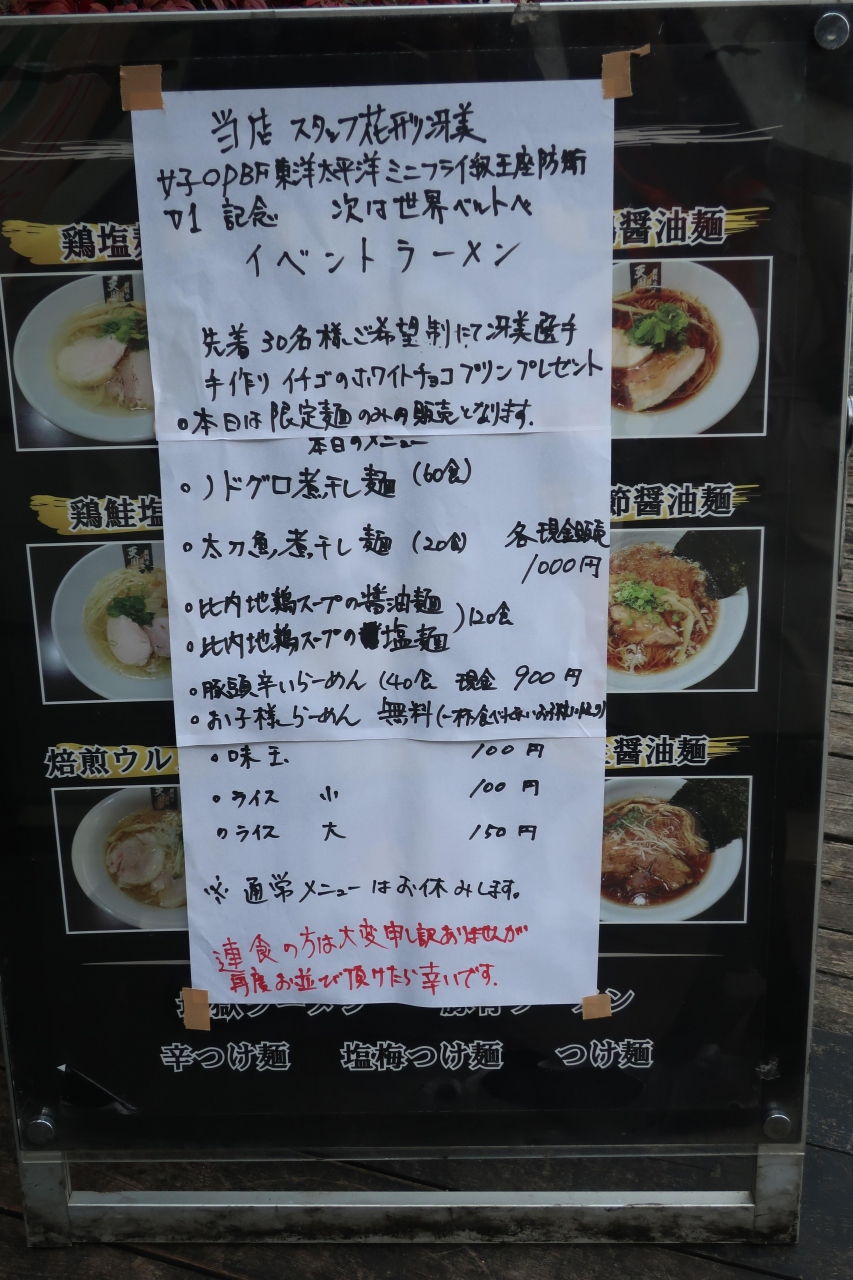 当店 スタッフ花形冴美
女子OPBF東洋太平洋ミニフライ級王座防衛
V1 記念 次は世界ベルトへ
イベントラーメン
先着30名様ご希望制にて冴美選手
手作りイチゴのホワイトチョコプリンプレゼント
・本日は限定麺のみの販売となります。
本日のメニュー
・ノドグロ煮干し麺 (60食)
・太刀魚煮干し麺 (20食) 各現金販売
1000円
・比内地鶏スープの醤油麺
・比内地鶏スープの塩麺 )120食
・豚頭辛いらーめん (40食 現金 900円
・お子様らーめん 無料
・味玉 100円
・ライス 小 100円
・ライス 大 150円
※ 通常メニューはお休みします。
連食の方は大変申し訳ありませんが
再度お並び頂けたら幸いです。
鶏塩
醤油麺
鶏鮭塩
節醤油麺
焙煎ウル
醤油麺
辛つけ麺 塩梅つけ麺 つけ麺